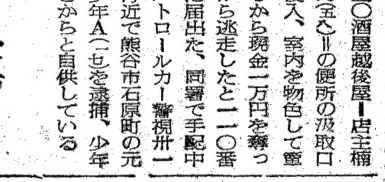 〇酒屋越後屋=店主楠
=の便所の汲取口
入、室内を物色して箪
から現金一万円を奪っ
ら逃走したと一一〇番
に届出た、同署で手配中
トロールカー警視卅一
付近で熊谷市石原町の元
年A(一七)を逮捕、少年
からと自供している